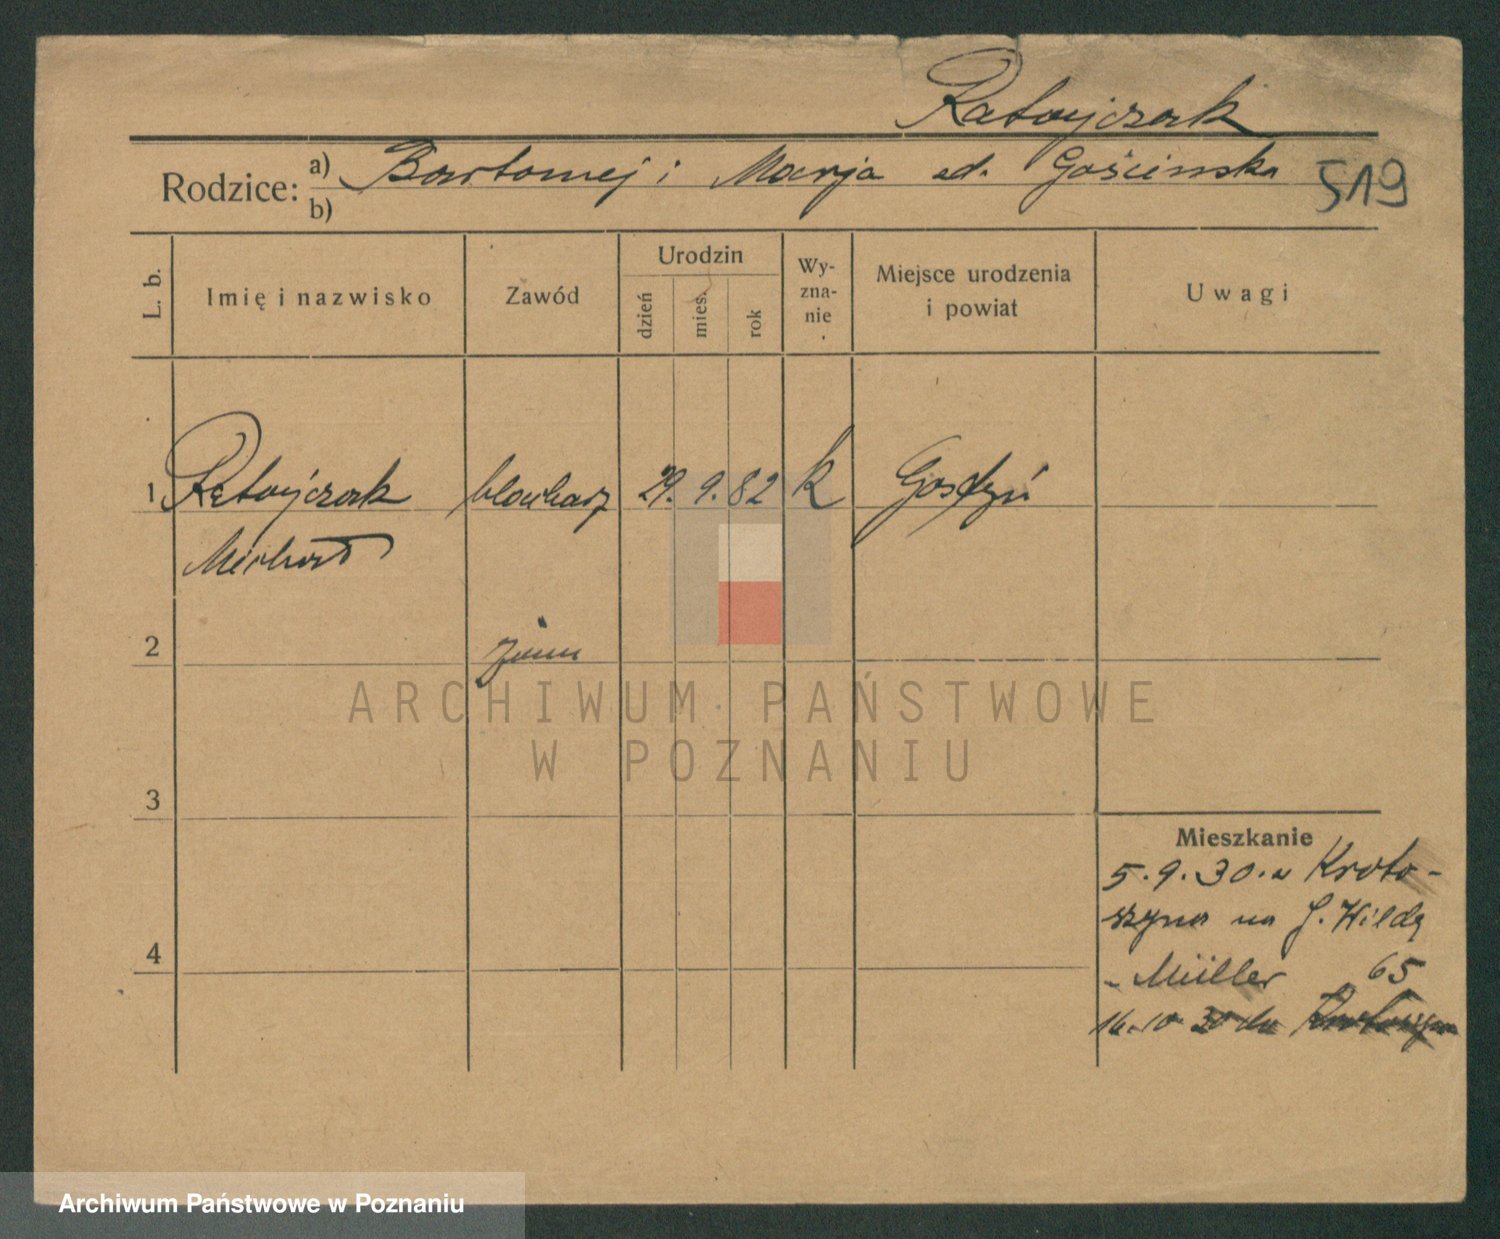 Ratajczak
Rodzice: a) Bartomej i Marja zd. Gościmska
b)
519
L. b.
Imię i nazwisko
Zawód
Urodzin
dzień
mies.
rok
Wy-
zna-
nie
Miejsce urodzenia
i powiat
Uwagi
1 Ratajczak blacharz 29. 9. 82 k Gostyń
Michał
2
3
4
ARCHIWUM PAŃSTWOWE
W POZNANIU
Mieszkanie
5.9.30. z Kroto-
szyna na G. Wildę
- Müller 65
16.10 30 do Krotoszyna
Archiwum Państwowe w Poznaniu